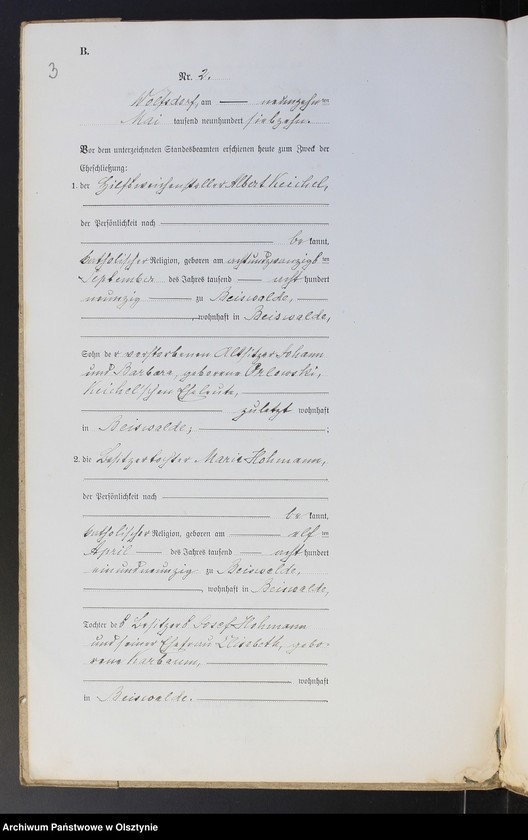 B.
3
Nr. 2.
Wolfsdorf, am neunzehnten
Mai tausend neunhundert siebzehn.
Vor dem unterzeichneten Standesbeamten erschienen heute zum Zweck der
Eheschließung:
1. der Hilfsweichensteller Albert Keichel,
der Persönlichkeit nach
be kannt,
katholischer Religion, geboren am achtundzwanzigsten
September des Jahres tausend acht hundert
neunzig zu Beiswalde,
, wohnhaft in Beiswalde,
Sohn der verstorbenen Altsitzer Johann
und Barbara, geborene Orlowski,
Keichel'schen Eheleute,
zuletzt wohnhaft
in Beiswalde;
2. die Besitzertochter Maria Hohmann,
der Persönlichkeit nach
be kannt,
katholischer Religion, geboren am elften
April des Jahres tausend acht hundert
einundneunzig zu Beiswalde,
, wohnhaft in Beiswalde,
Tochter des Besitzers Josef Hohmann
und seiner Ehefrau Elisabeth, gebo-
rene Karbaum,
wohnhaft
in Beiswalde.
Archiwum Państwowe w Olsztynie